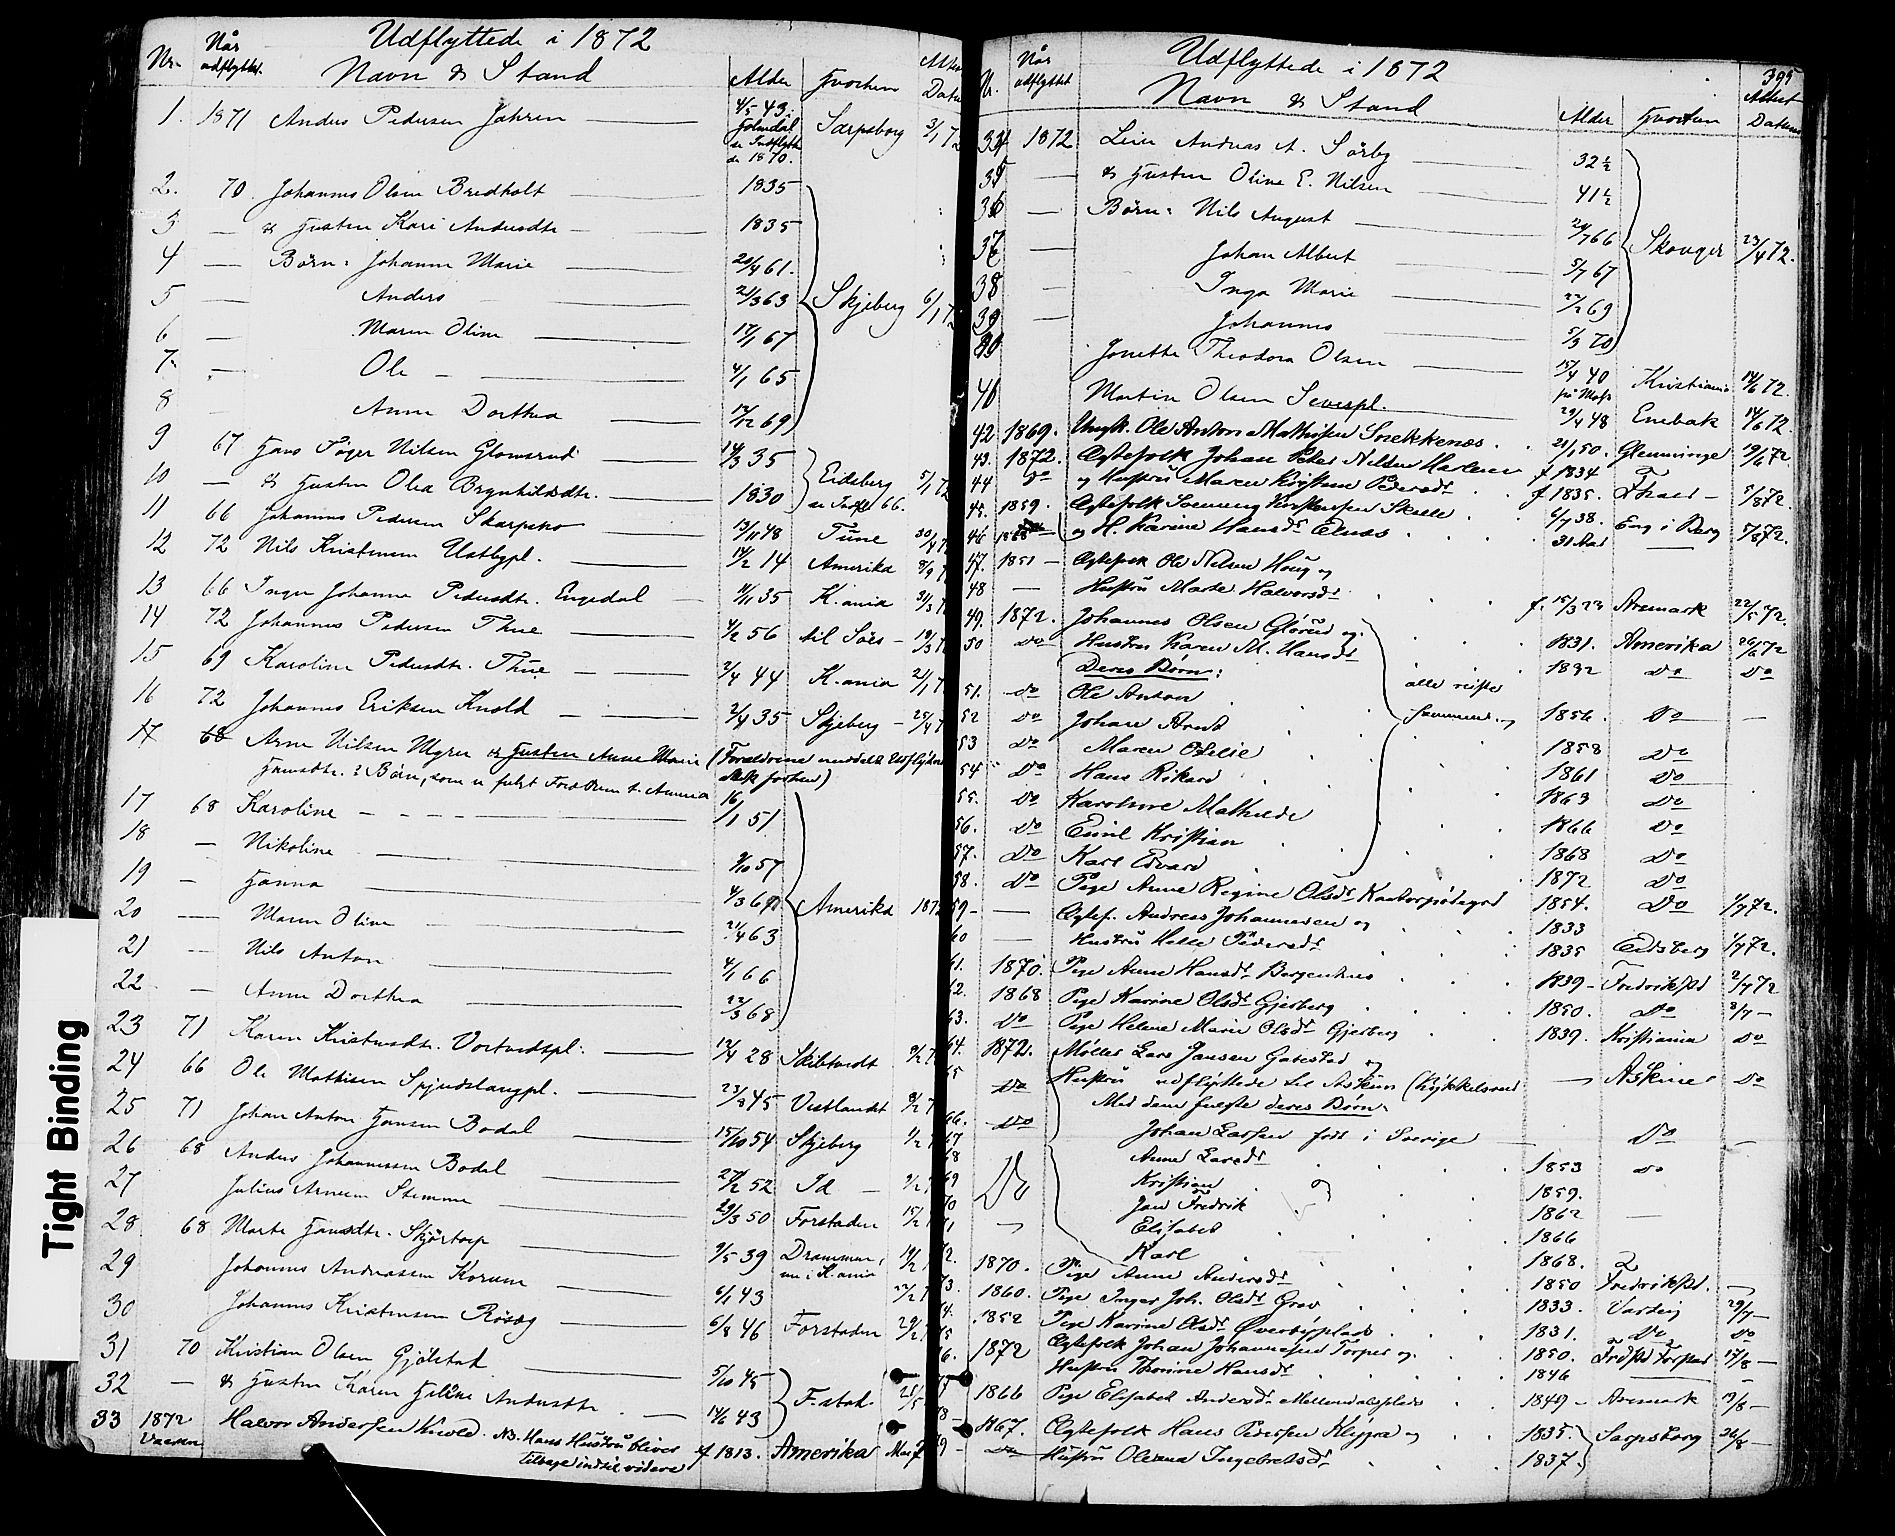 Udflyttede i 1872
Nr. Når udflyttet. Navn & Stand Alder Hvorhen Datum
1. 1871 Anders Pedersen Jahren 4/5 43. Sarpsborg 3/1 72
de 1870.
2. 70 Johannes Olsen Bredholt 1835
3 — & Hustru Kari Andersdtr 1835
4 — Børn: Johanne Marie 20/4 61.
5 — Anders 21/3 63 Skjeberg 6/1 72
6 — Maren Oline 17/1 67
7. — Ole 4/1 65
8 Anne Dorthea 12/12 69
9 67 Hans Tøger Nilsen Glomsrud 14/3 35
10 — & Hustru Olea Brynhildsdtr. 1830 Eideberg 5/1 72
se Indfl. 66.
11 66 Johannes Pedersen Skarpsno 13/11 48 Tune 30/4
12 72 Nils Kristensen Ustbypl. 14/2 14 Amerika
13 66 Inger Johanne Pedersdtr. Engedal 4/11 35 K.ania
14 72 Johannes Pedersen Thue 4/2 56 til Søes - 19/3
15 69 Karoline Pedersdtr. Thue 2/4 44 K.ania 2/1
16 72 Johannes Eriksen Knold 2/4 35 Skjeberg - 25/4
17 68 Arne Nilsen Myren & Hustru Anne Marie (Forældrene meddelt Udflytn
Hansdtr. & Børn, som u fulgt Foræld t. Amerika
17 68 Karoline 16/1 51
18 — Nikoline 9/10 57
19 - Hanna 4/3 60 Amerika 1872
20 — Maren Oline 21/4 63
21 — Nils Anton 4/1 66
22 - Anne Dorthea 22/3 68
23 71 Karen Kristensdtr. Vortvedtpl. 12/4 28 Skibtvedt 9/2
24 66 Ole Mathisen Spjudslangpl. 23/2 45 Vestlandet 9/2
25 71 Johan Anton Hansen Bodal 15/10 54 Skjeberg 1/2
26 68 Anders Johannessen Bodal 27/2 52 Id - 9/2
27 Julius Arnesen Stemme 29/3 50 Forstaden 15/2
28 68 Marte Hansdtr. Skjørtorp 9/5 39 Drammen,
nu i K.ania
29 Johannes Andreassen Korum 6/1 43 27/2
30 Johannes Kristensen Rösög 6/8 46 Forstaden 29/2
31 70 Kristian Olsen Gjølstad 5/10 45
32 — & Hustru Karen Helene Andersdtr. 14/6 43 F.stad
33 1872 Halvor Andersen Knold. NB. Hans Hustru bliver f 1813. Amerika Maj
Vaaren tilbage indtil videre
Udflyttede i 1872 395
Nr. Når udflyttet Navn & Stand Alder Hvorhen Attest Datum
34 1872 Leier Andreas A. Sørby 32 1/2
35 — & Hustru Oline E. Nilsen 41 1/2
36 — Børn: Nils August 29/7 66
37 — Johan Albert 5/7 67 Skouger 23/4 72.
38 — Inga Marie 22/2 69
39 — Johannes 5/3 70
40 Jonette Theodora Olsen 15/4 40 Kristiania 14/6 72.
41 Martin Olsen Severpl. 29/4 48 Enebak 14/6 72.
42 1869. Ungk. Ole Anton Mathisen Snekkenæs 21/1 50. Glemminge 19/6 72
43. 1872. Ægtefolk Johan Peter Nilsen f 1834
44 Do og Hustru Maren Kristine Pedersdr f 1835. Fstad - 5/8 72.
45. 1859. Ægtefolk Svenning Torstensen Skolle 6/7 38.
46 og H. Karine Hansdr Elnæs 31 Aar Eng i Berg 5/8 72.
47. 1851 — Ægtefolk Ole Nilsen Houg og
48 — Hustru Marte Halvorsdr f. 15/3 23 Aremark 22/5 72.
49. 1872. Johannes Olsen Glørud og 1831. Amerika 26/6 72
50 Do Hustru Karen M. Hansdr 1832 Do Do
Deres Børn: alle reiste
51. Do Ole Anton 1856. Do —
52 Do Johan Arndt 1858 Do
53 Do Maren Otilie 1861 Do
54 Do Hans Rikard 1863 Do
55. Do Karoline Mathilde 1866 Do
56. Do Emil Kristian 1868 Do
57. Do Karl Edvard 1872 Do
58. Do Pige Anne Regine Olsdr Kantorpødegrd 1854. Do 1/7 72.
59 — Ægtef. Andreas Johannesen og 1833
60 — Hustru Helle Pedersdr 1835 Eidsberg 1/7 72.
61. 1870. Pige Anne Hansdr Borgenhus 1839 - Fredrikstd 2/7 72
62. 1868 Pige Karine Olsdr Gjerberg 1850. Do 8/7 —
63. Do Pige Helene Marie Olsdr Gjerberg 1839. Kristiania Do
64. 1872. Møller Lars Jansen Gatestad og
65 Do Hustru udflyttede til Askim (Kykkelsrud — Askim Do
Med dem fulgte deres Børn:
66. Do Johan Larsen født i Sverige Do —
67
68 Anne Larsdr 1853 Do
69 Do Kristian 1859.
70 Jan Fredrik 1862 —
71 Elisabet 1866
72. Karl 1868.
1870. Pige Anne Andersdr 1850 Fredrikstd.
73. 1860. Pige Inger Joh. Olsdr Grav 1833. Varteig 29/7 —
74. 1852 Pige Karine Olsdr Øverbyplads 1831. Do Do
75 1872 Ægtefolk Johan Johannesen Torper og 1850. 17/8 —
76. Hustru Thomine Hansdr 1846
1866 Pige Elisabet Andersdr Mellendalsplads 1849 - Aremark 19/8 —
78 1867. Ægtefolk Hans Pedersen Kløgra og 1835. Sarpsborg 26/8 —
79 Do Hustru Oleana Ingebretsdr 1837.
Tight Binding